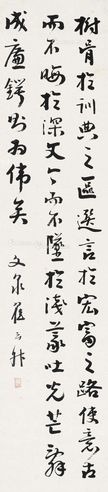 樹骨於訓典之區選言於宏富之路使意古
而不晦於深文今而不墜於淺義吐光芒辭
成廉鍔則為偉矣